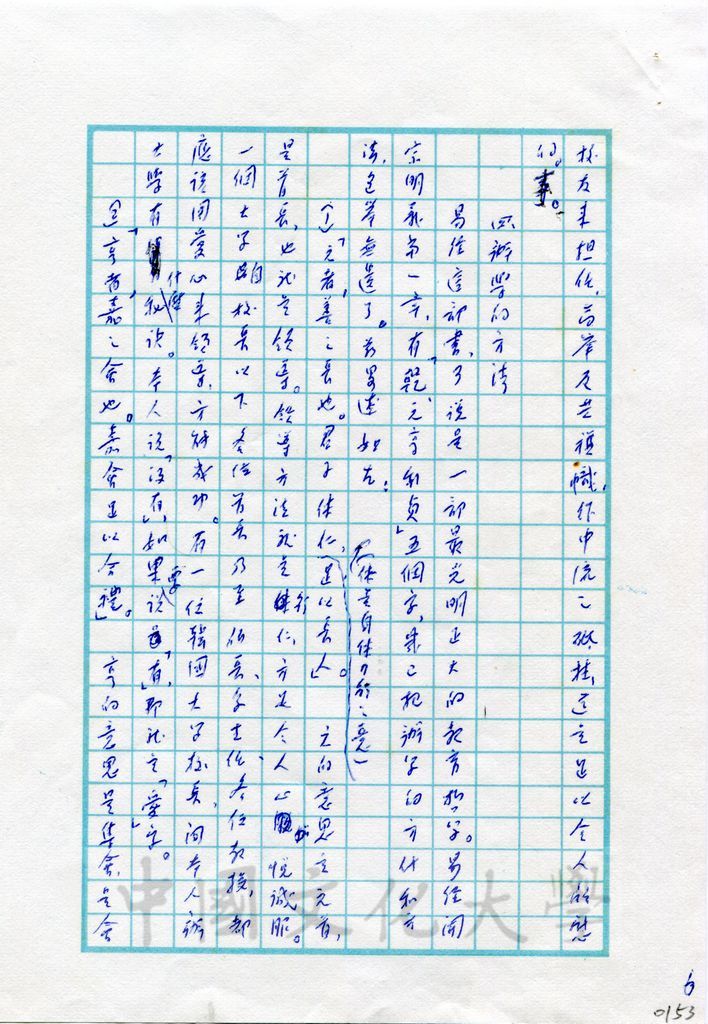 校友來担任,高岸及共祺幟,作中流之砥柱,這是足以令人欣慰
的。
四、辦學的方法
易經這部書,可說是一部最光明正大的教育哲學。易經開
宗明義第一章,有「乾,元亨利貞」五個字,業已把辦學的方什和方
法,包举無遺了。茲畧述如左:
(一)「元者,善之長也。君子体仁,足以長人」。元的意思是元首,
(体是自体力行之意)
是首長,也就是領導。領導方法就是行仁,方足令人心悅誠服。
一個大学自校長以下各位首長乃至 伍長、学士伍、各位教授,都
應該用愛心來領導,方能成功。有一位韓國大学校長,问本人辦
大學有什麼秘訣。本人說「沒有」,如果要說「有」,那就是「愛字」。
(二)「亨者,嘉之會也。嘉會足以合禮」。亨的意思是集會,是會
中國文化大學
0153